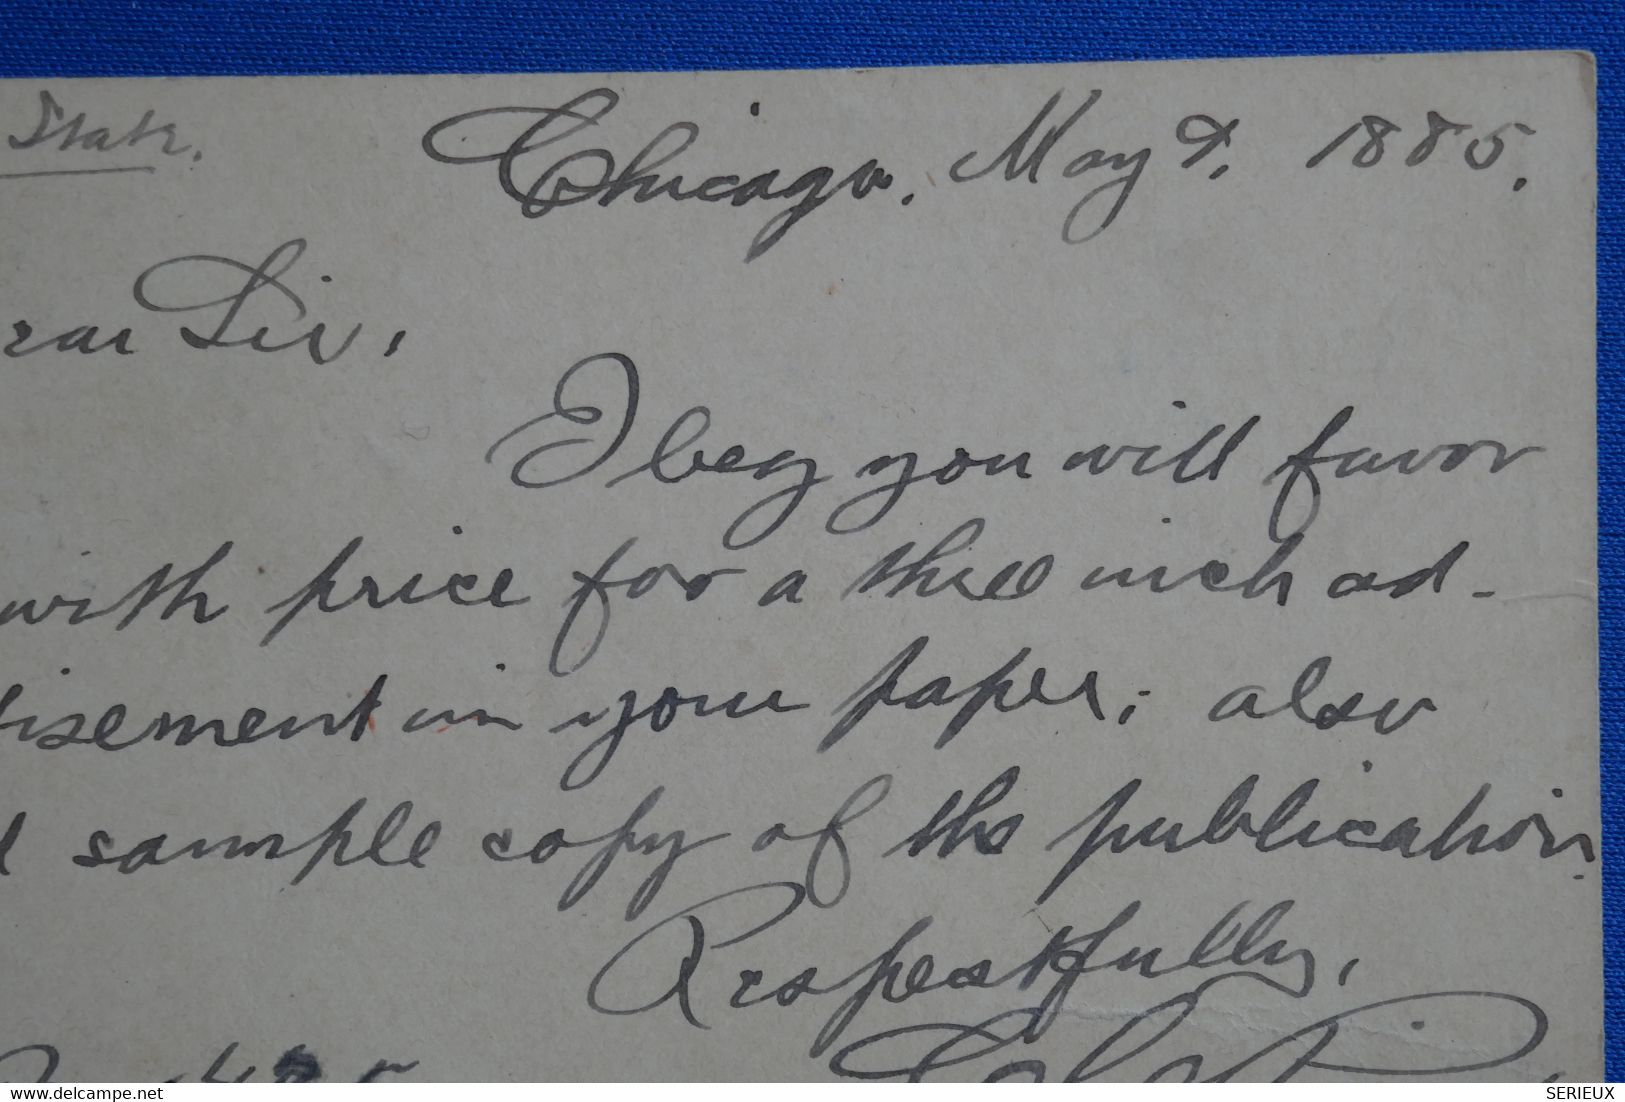 State.
Chicago, May 9, 1885.
ear Sir,
I beg you will favor
with price for a three inch ad-
tisement in your paper; also
sample copy of the publication.
Respectfully,
www.delcampe.net
SERIEUX